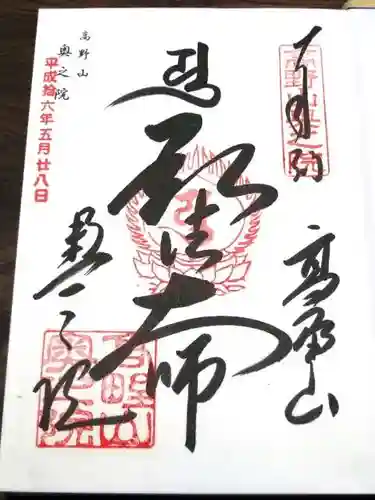 奉納
高野山奥之院
高野山
弘法大師
奥之院
高野山
奥之院
平成拾六年五月廿八日
高野山
奥之院